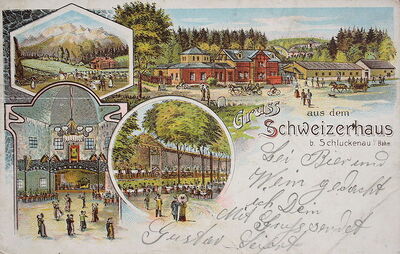 Gruss
aus dem
Schweizerhaus
b. Schluckenau Böhm.
Bei Bier und
Wein gedacht
ich Dein
Mit Gruss sendet
Gustav